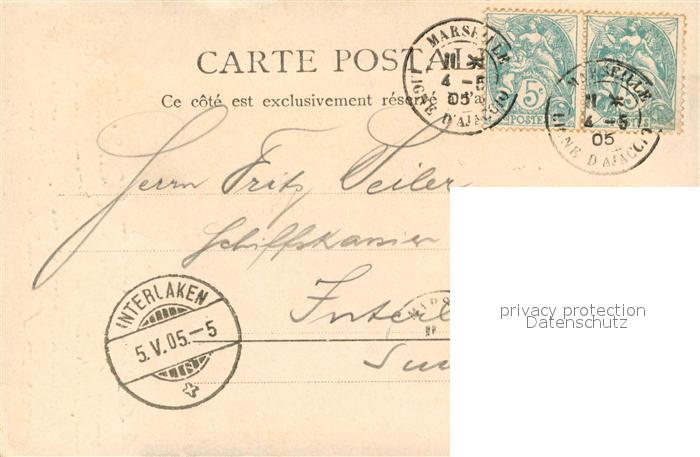 CARTE POSTALE
Ce côté est exclusivement réservé à l'a
MARSEILLE
4 -5
05
LIGNE D'AJACCIO
5c
POSTES
MARSEILLE
4 -5
05
LIGNE D'AJACCIO
Herrn Fritz Seiler
Schiffskassier
Interl
INTERLAKEN
5.V.05.-5
MARS
privacy protection
Datenschutz